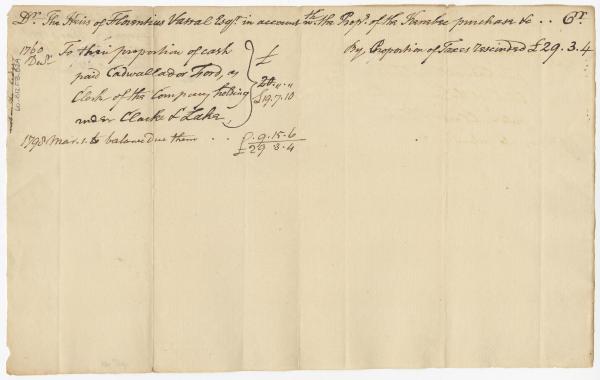 Dr. The Heirs of Florentius Vassal Esqr. in account wth. the Propr. of the Kennebec purchase &c .. Cr.
1760 To their proportion of cash
Decr.
paid Cadwallador Ford, as
Clerk of the Company holding
under Clarke & Lake,
£
24 " "
£19.7.10
1798 Mar. 1. to balance due them . . . £.9.15.6
£29 3.4
By Proportion of Taxes rescinded £29.3.4